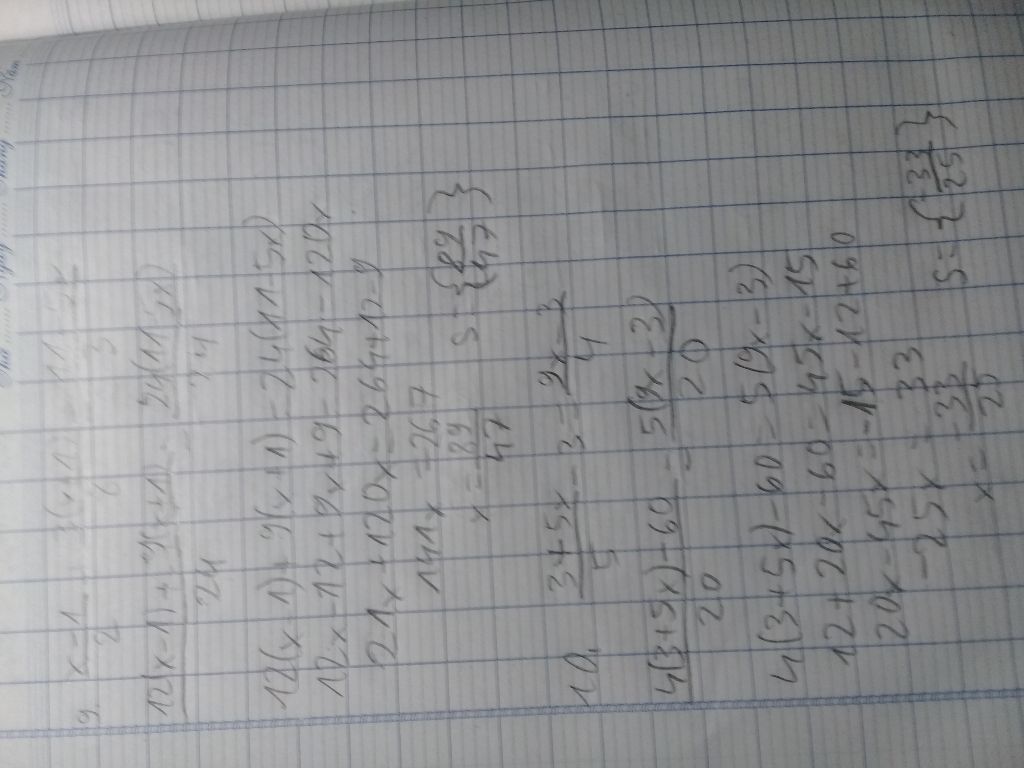 Tháng Năm
9. \frac{x-1}{2}
\frac{12(x-1)+9(x+1)}{24} = \frac{24(11-5x)}{24}
12(x-1)+9(x+1) = 24(11-5x)
12x-12+9x+9 = 264-120x
21x+120x = 264+12-9
141x = 267
x = \frac{89}{47} S = {\frac{89}{47}}
10. \frac{3+5x}{5} - 3 = \frac{9x-3}{4}
\frac{4(3+5x)-60}{20} = \frac{5(9x-3)}{20}
4(3+5x)-60 = 5(9x-3)
12+20x-60 = 45x-15
20x-45x = -15-12+60
-25x = 33
x = -\frac{33}{25} S = {-\frac{33}{25}}